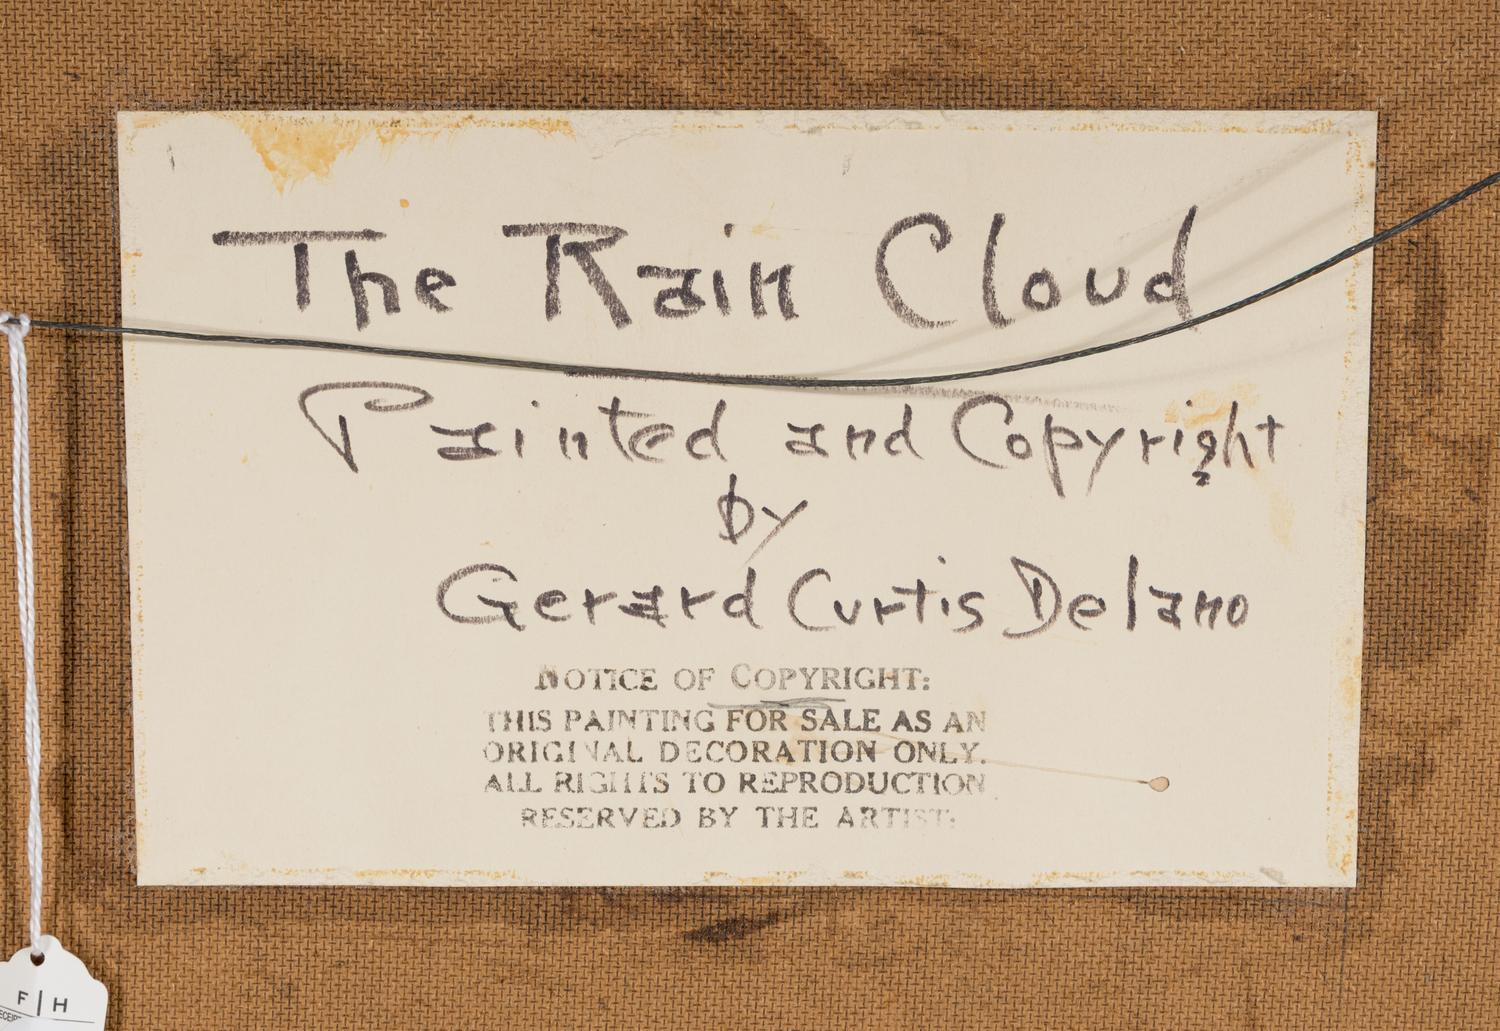 The Rain Cloud
Painted and Copyright
by
Gerard Curtis Delano
NOTICE OF COPYRIGHT:
THIS PAINTING FOR SALE AS AN
ORIGINAL DECORATION ONLY.
ALL RIGHTS TO REPRODUCTION
RESERVED BY THE ARTIST.
F | H